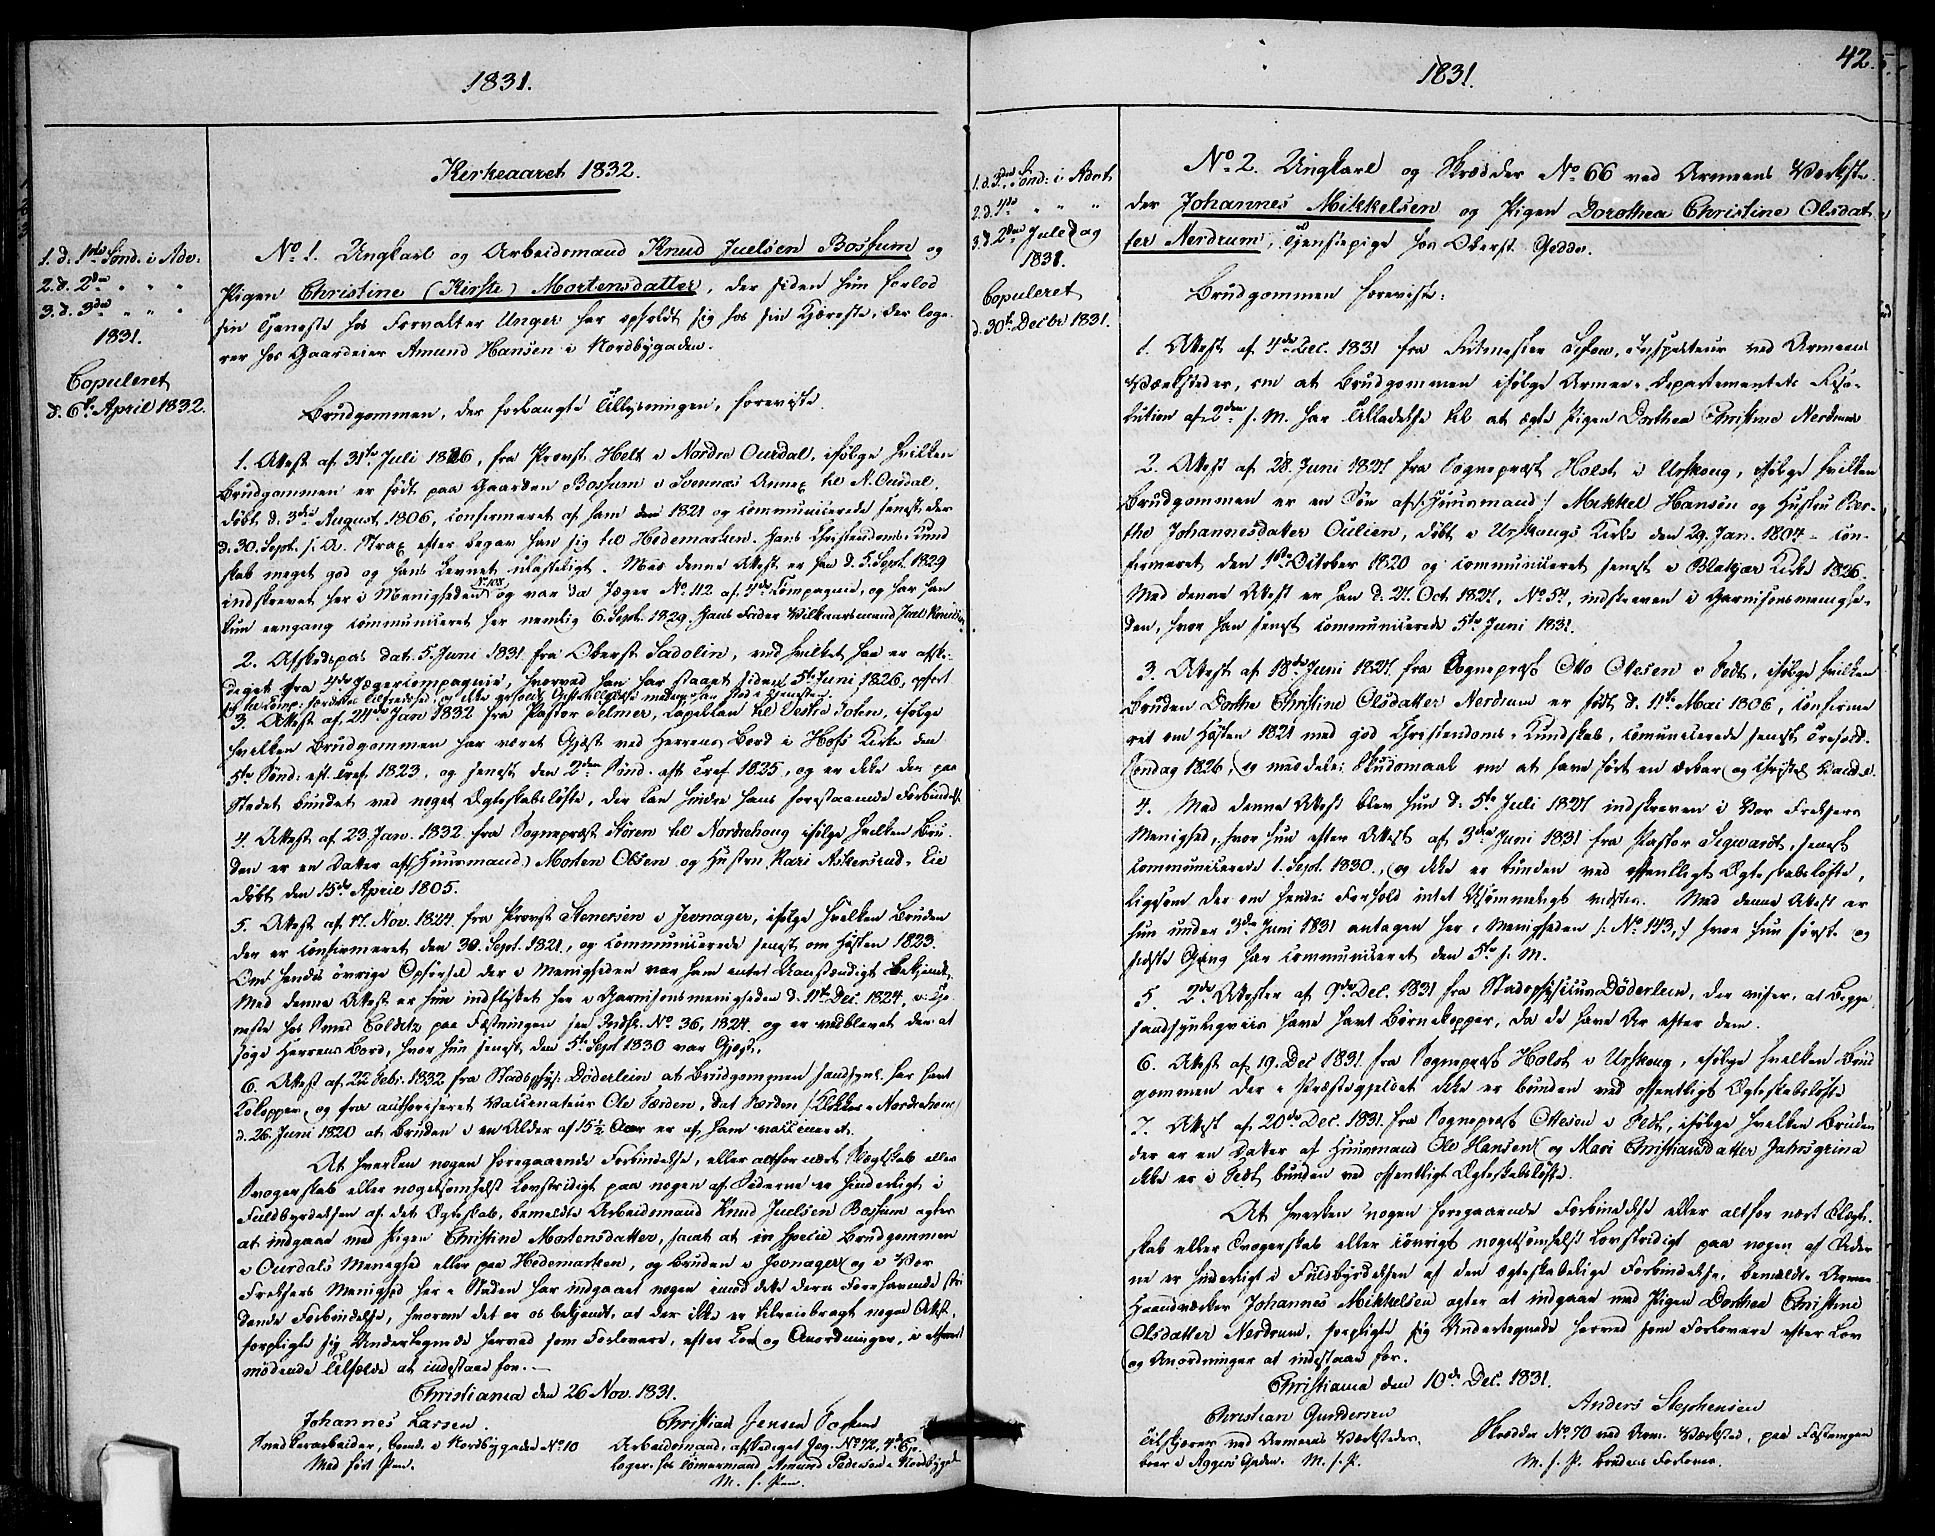 1831.
Kirkeaaret 1832.
1. d. 1ste Sønd. i Adv.
2. d. 2den " " "
3. d. 3die " " "
1831.
Copuleret
d. 6te April 1832.
No 1. Ungkarl og Arbeidsmand Knud Juelsen Bosfum og
Pigen Christine (Kirsti) Mortensdatter, der siden hun forlod
sin Tjeneste hos Forvalter Unger har opholdt sig hos sin Kjæreste, der loge-
rer hos Gaardeier Amund Hansen i Nordbygaden.
Brudgommen, der forlangte Tillysningen, foreviste
1. Attest af 31te Juli 1826, fra Provst Helt i Nordre Ourdal, ifølge hvilken
Brudgommen er født paa Gaarden Bosfum i Svennæs Annex til N. Ourdal,
døbt d. 3die August 1806, confirmeret af ham den 1821 og communicerede senest der
d. 30. Sept. s. A. Strax efter begav han sig til Hedemarken. Hans Christendoms-Kund-
skab meget god og hans Levnet ulasteligt. Med denne Attest er han d. 5. Sept. 1829
No 108
indskrevet her i Menigheden og var da Jæger No 42 af 4de Compagnie, og har han
kun eengang communiceret her nemlig 6. Sept. 1829. Hans Fader
2. Afskedspas dat. 5. Juni 1831 fra Oberst Sadolin, ved hvilket han er afske-
diget fra 4de Jægercompagnie, hvorved han har staaet siden 5te Juni 1826, opført
3. Attest af 24de Jan 1832 fra Pastor Selmer, Capellan til Vestre Toten, ifølge
hvilken Brudgommen har været Gjæst ved Herrens Bord i Hofs Kirke den
5te Sønd. eft. Tref. 1823, og senest den 2den Sønd. eft Tref 1825, og er ikke der paa
Stedet bundet ved noget Ægteskabsløfte, der kan hindre hans forestaaende Forbindelse.
4. Attest af 23. Jan. 1832 fra Sognepræst Støren til Norderhoug ifølge hvilken Bru-
den er en Datter af (Huusmand) Morten Olsen og Hustru Kari Askersrud-Eie
døbt den 15de April 1805.
5. Attest af 17. Nov. 1824 fra Provst Stenersen i Jevnager, ifølge hvilken Bruden
der er confirmeret den 30. Sept. 1821, og communicerede senest om Høsten 1823.
Om hendes øvrige Opførsel der i Menigheden var ham intet Uanstændigt bekjendt.
Med denne Attest er hun indflyttet her i Garnisonsmenigheden d. 11te Dec. 1824, i Tje-
neste hos Smed Colditz paa Fæstningen see Indfl. No 36, 1824 og er vedblevet der at
søge Herrens Bord, hvor hun senest den 5te Sept 1830 var Gjæst.
6. Attest af 22 Febr. 1832 fra Stadsphys: Döderlein at Brudgommen sandsynl. har havt
Kokopper, og fra authoriseret Vaccinateur Ole Færden, dat Færden (Klokker i Norderhoug)
d. 26. Juni 1820 at Bruden i en Alder af 15½ Aar er af ham vaccineret.
At hverken nogen foregaaende Forbindelse, eller altfor nært Slægtskab eller
Svogerskab eller nogetsomhelst Lovstridigt paa nogen af Siderne er hinderligt i
Fuldbyrdelsen af det Ægteskab, bemeldte Arbeidsmand Knud Juelsen Bosfum agter
at indgaae med Pigen Christine Mortensdatter, samt at in specie Brudgommen
i Ourdals Menighed eller paa Hedemarken, og Bruden i Jevnager og i Vor
Frelsers Menighed her i Staden har indgaaet nogen imod dette deres Forehavende stri-
dende Forbindelse, hvorom det er os bekjendt, at der ikke er tilveiebragt nogen Attest,
forpligte sig Undertegnede herved som Forlovere, efter Lov og Anordninger, i
mødende Tilfælde at indestaae for.
Christiania den 26 Nov. 1831.
Johannes Larsen
Snedkerarbeider, boende i Nordbygaden No 10
Med ført Pen.
Christian Jensen
Arbeidsmand, afskediget Jæg. No 72, 4de Cp.
loger. hos Tømmermand Amund Pedersen i Nordbygad.
M. f. Pen.
42.
1831.
1. d. 3die Sønd: i Advt
2. d. 4de " " "
3. d. 2den Juledag
1831.
Copuleret
d. 30te Decbr 1831.
No 2. Ungkarl og Skrædder No 66 ved Armeens Værkste-
der Johannes Mikkelsen og Pigen Dorothea Christine Olsdat-
ter Nerdrum, Tjenstepige hos Oberst Gedde.
Brudgommen foreviste:
1. Attest af 4de Dec. 1831 fra Ritmester, Inspecteur ved Armeens
Værksteder, om at Brudgommen ifølge Armee-Departementets Reso-
lution af 2den s. M. har Tilladelse til at ægte Pigen Dorthea Christine Nerdrum
2. Attest af 28. Juni 1827 fra Sognepræst Holst i Urskoug, ifølge hvilken
Brudgommen er en Søn af (Huusmand) Mikkel Hansen og Hustru Ber-
the Johannesdatter Oulien, døbt i Urskougs Kirke den 29. Jan. 1804 - con-
firmeret den 1ste October 1820 og communiceret senest i Blakjær Kirke 1826.
Med denne Attest er han d. 27. Oct. 1827, No 57, indskreven i Garnisonsmenighe-
den, hvor han senest communicerede 5te Juni 1831.
3. Attest af 18de Juni 1827 fra Sognepræst Otto Ottesen i Fedt, ifølge hvilken
Bruden Dorthe Christine Olsdatter Nerdrum er født d. 11te Mai 1806, confirme-
ret om Høsten 1821 med god Christendoms-Kundskab, comunicerede senest
Søndag 1826, og meddeles Skudsmaal om at have ført en ærbar og christel. Vandel.
4. Med denne Attest blev hun d. 5te Juli 1827 indskreven i Vor Frelsers
Menighed, hvor hun efter Attest af 3die Juni 1831 fra Pastor Segwardt, senest
communicerede 1. Sept. 1830, og ikke er bunden ved offentligt Ægteskabsløfte,
ligesom der om hendes Forhold intet Usømmeligt vidstes. Med denne Attest er
hun under 3die Juni 1831 antagen her i Menigheden /: No 143, :/ hvor hun første og
sidste Gang har communiceret den 5te s. M.
5. 2de Attester af 9de Dec. 1831 fra Stadsphysicus Döderlein, der viser, at Begge
sandsynligviis have havt Børnekopper, da de have Ar efter dem.
6. Attest af 19. Dec 1831 fra Sognepræst Holst i Urskoug, ifølge hvilken Brud-
gommen der i Præstegjeldet ikke er bunden ved offentligt Ægteskabsløfte
7. Attest af 20de Dec. 1831 fra Sognepræst Ottesen i Fedt, ifølge hvilken Bruden
der er en Datter af Huusmand Ole Hansen og Mari Christiansdatter Jahrsgrina
ikke er i Fedt bunden ved offentligt Ægteskabsløfte.
At hverken nogen foregaaende Forbindelse eller altfor nært Slægt-
skab eller Svogerskab eller iøvrigt nogetsomhelst Lovstridigt paa nogen af Sider-
ne er hinderligt i Fuldbyrdelsen af den ægteskabelige Forbindelse, bemeldte Armee-
Haandværker Johannes Mikkelsen agter at indgaae med Pigen Dorthea Christine
Olsdatter Nerdrum, forpligte sig Undertegnede herved som Forlovere efter Lov
og Anordninger at indestaae for.
Christiania den 10de Dec. 1831.
Christian Gundersen
Tilskjærer ved Armeens Værksteder,
boer i Aggers Gaden. M. f. P.
Anders Stephensen
Skrædder No 70 ved Arm. Værksted, paa Fæstningen
M. f. P. Brudens Forlover.